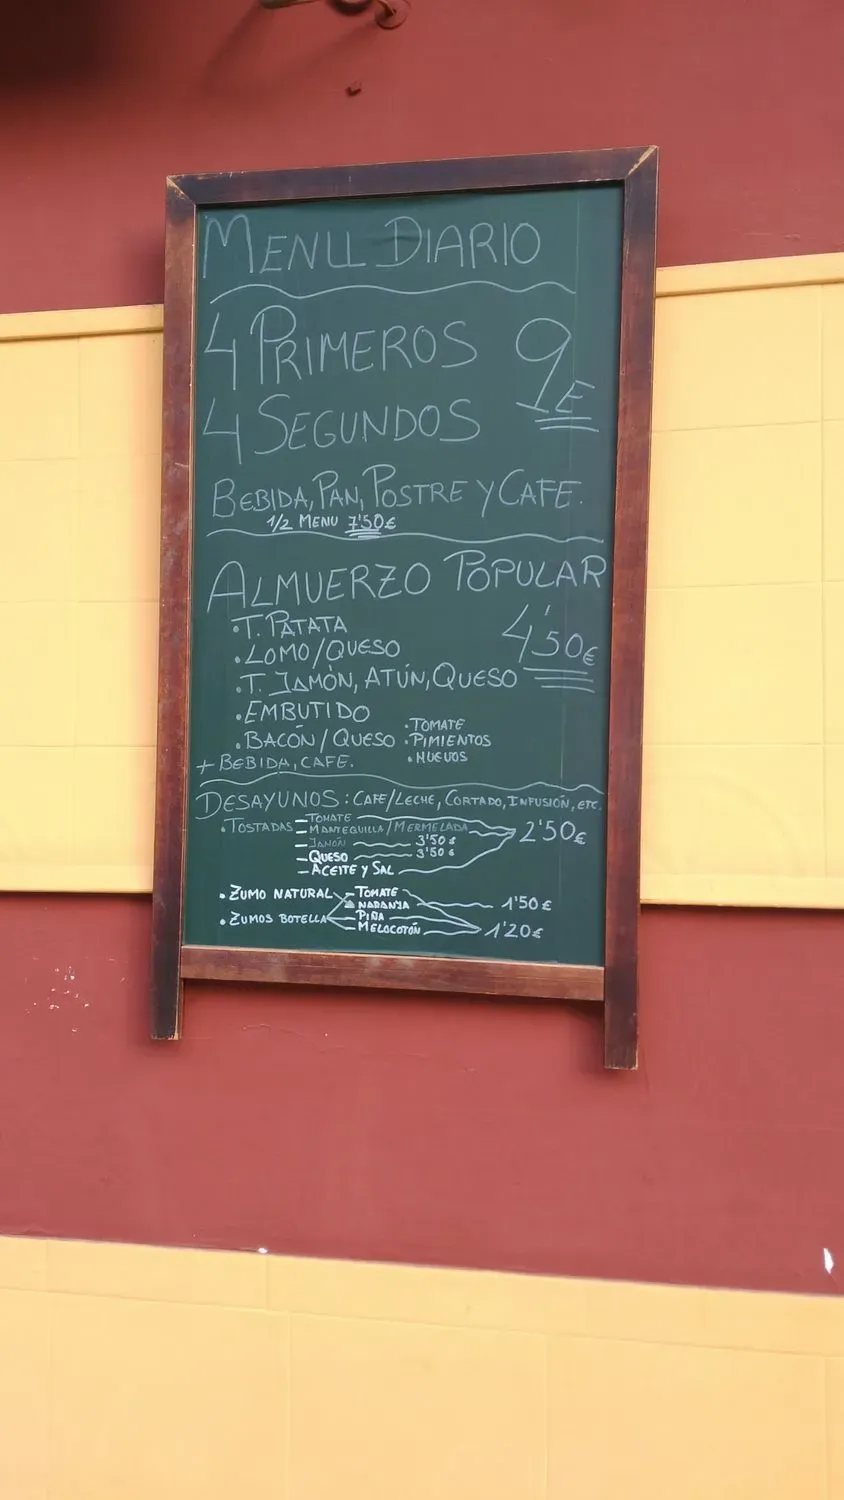 MENU DIARIO
4 PRIMEROS 9€
4 SEGUNDOS
BEBIDA, PAN, POSTRE Y CAFE.
1/2 MENU 7'50€
ALMUERZO POPULAR
4'50€
• T. PATATA
• LOMO/QUESO
• T. JAMÓN, ATÚN, QUESO
• EMBUTIDO
• BACÓN/QUESO
• TOMATE
• PIMIENTOS
• HUEVOS
+ BEBIDA, CAFE.
DESAYUNOS: CAFE/LECHE, CORTADO, INFUSIÓN, etc.
• TOSTADAS – TOMATE
– MANTEQUILLA/MERMELADA 2'50€
– JAMÓN 3'50€
– QUESO 3'50€
– ACEITE Y SAL
• ZUMO NATURAL – TOMATE
NARANJA 1'50€
• ZUMOS BOTELLA – PIÑA
– MELOCOTÓN 1'20€